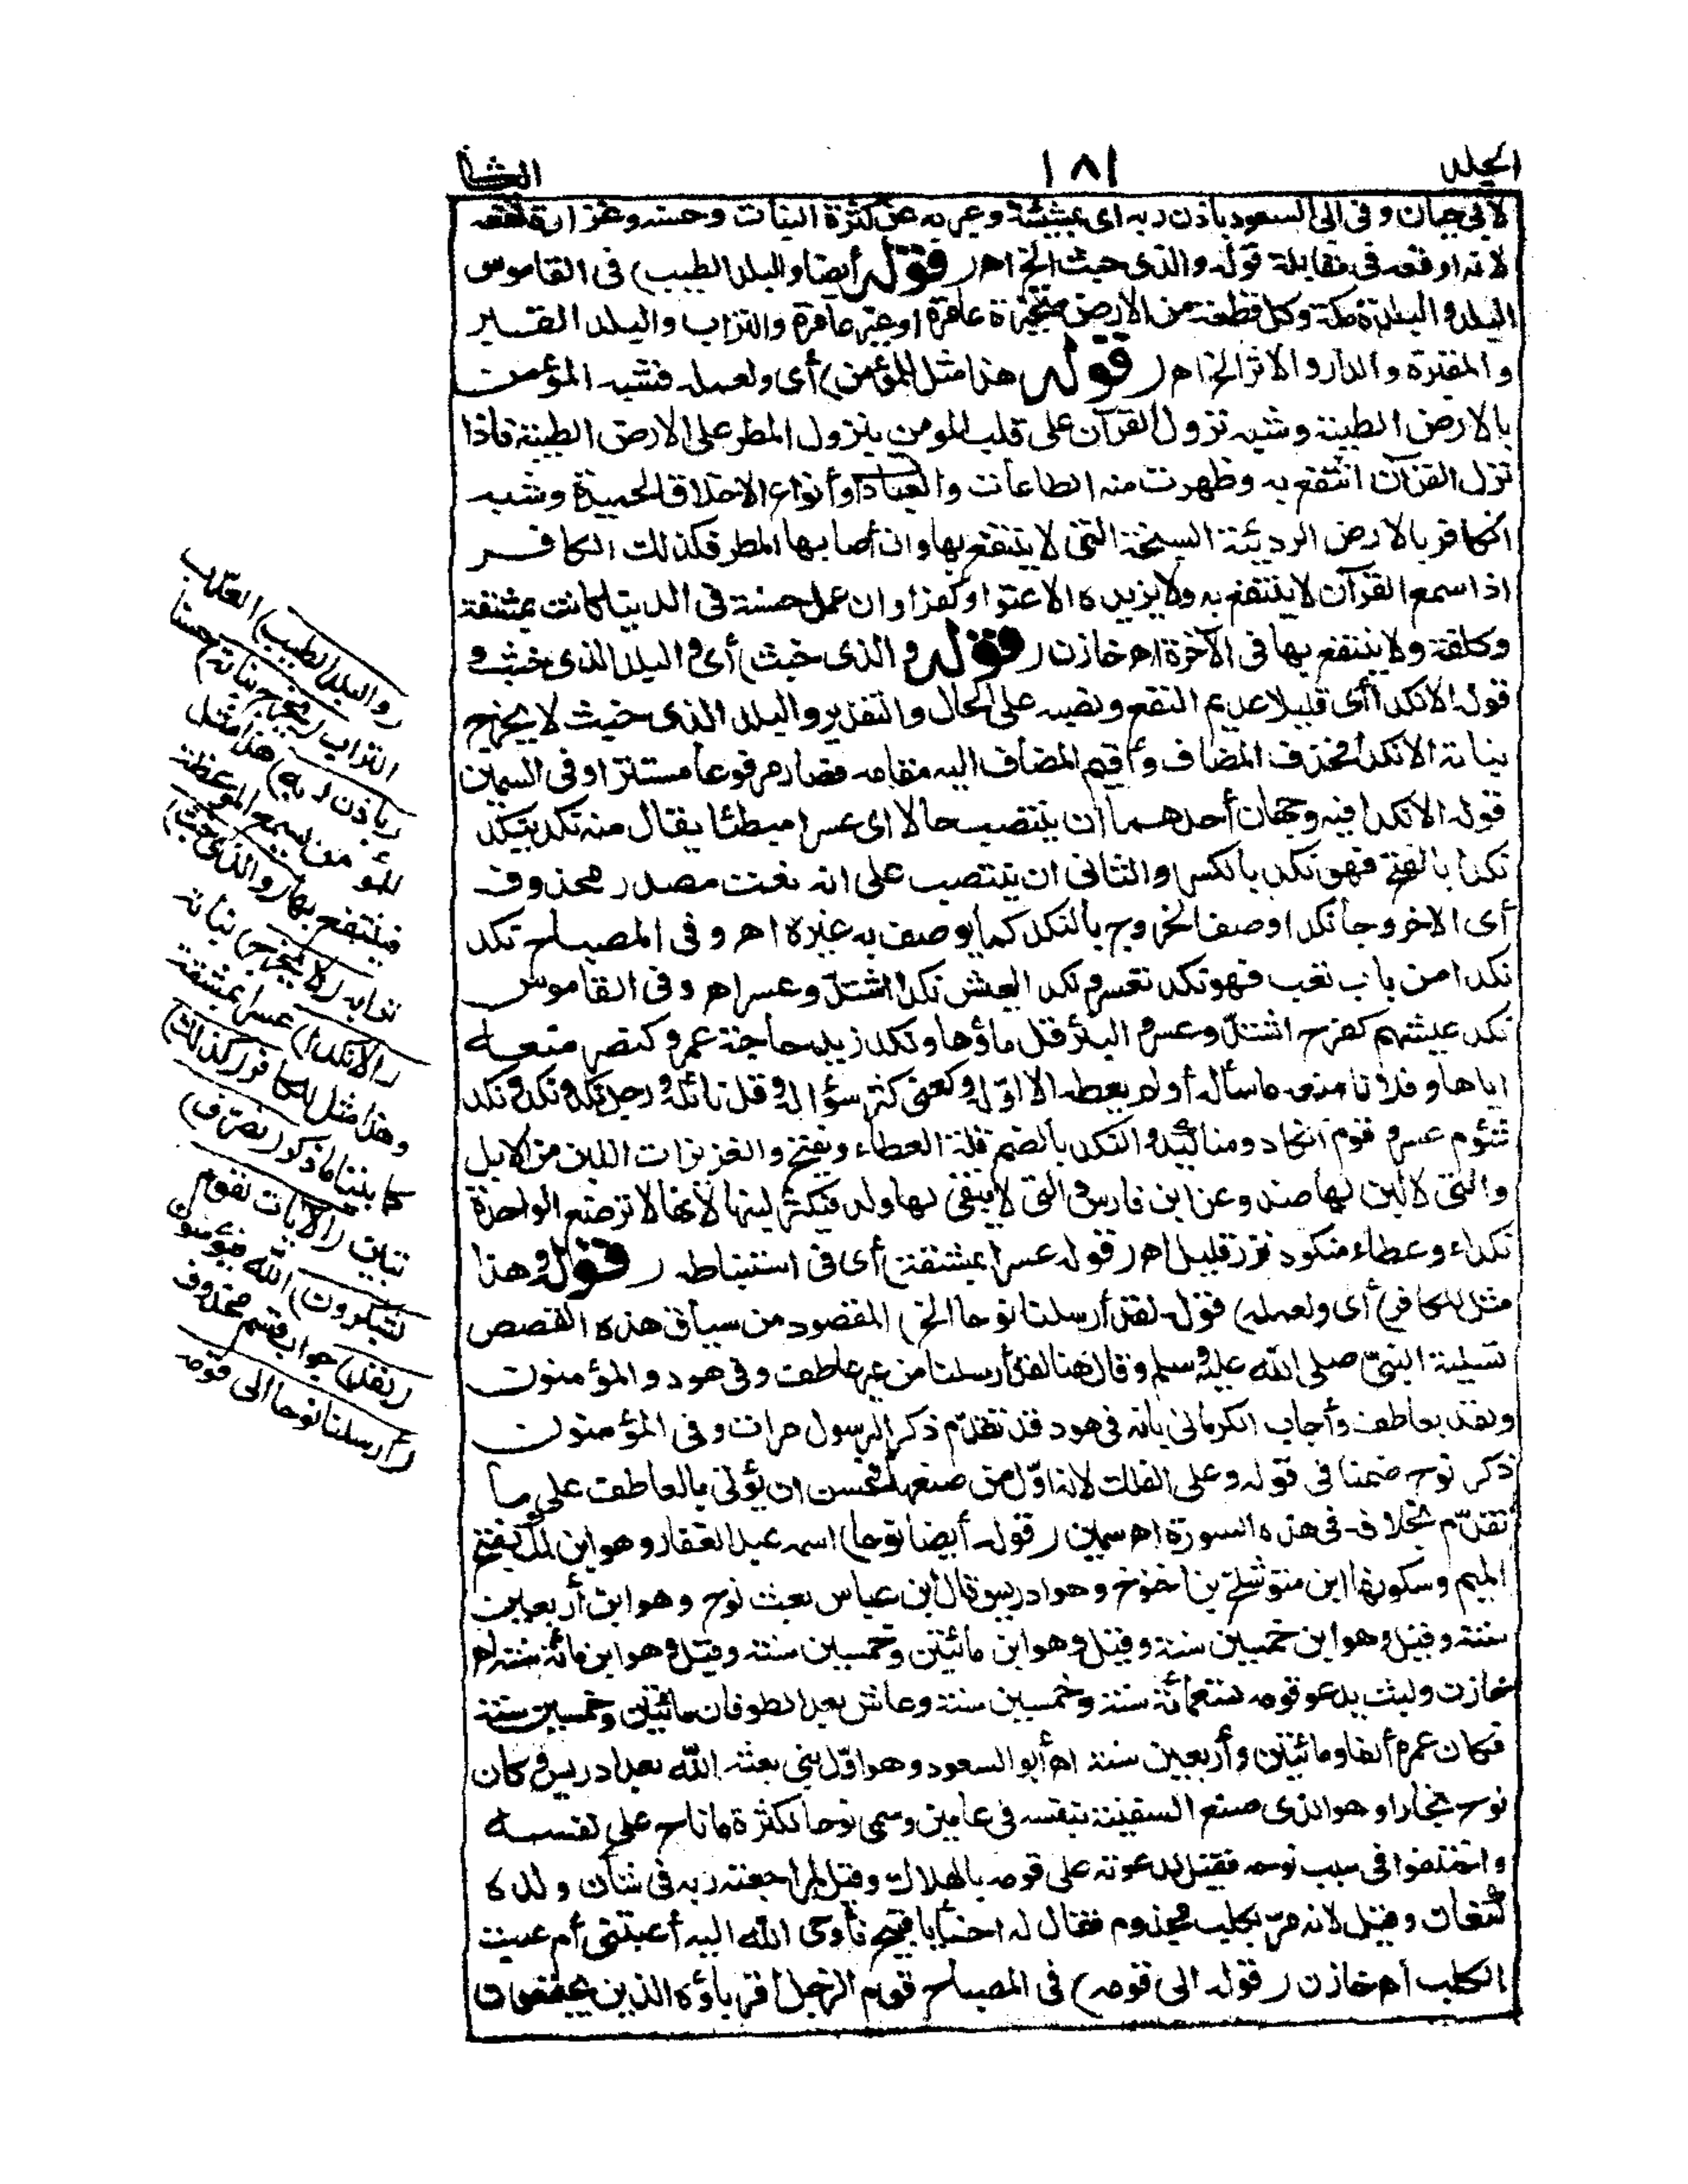 الجلد ١٨١ الثانى
لابى حيان وفى ابى السعود باذن ربه اى بمشيئته وعبر به عن كثرة النبات وحسنه وغزارة نفعه
لانه اوقعه فى مقابلة قوله والذى خبث الخ اهـ (قوله أيضا والبلد الطيب) فى القاموس
البلد والبلدة مكة وكل قطعة من الارض متحيزة عامرة او غير عامرة والتراب والبلد القبر
والمقبرة والدار والاثر الخ اهـ (قوله هذا مثل للمؤمن) أى ولعمله فشبه المؤمن
بالارض الطيبة وشبه نزول القرآن على قلب المومن بنزول المطر على الارض الطيبة فاذا
نزل القرآن انتفع به وظهرت منه الطاعات والعبادا وأنواع الاخلاق الحميدة وشبه
الكافر بالارض الرديئة السبخة التى لا ينتفع بها وان أصابها المطر فكذلك الكافر
اذا سمع القرآن لا ينتفع به ولا يزيده الا عتوا وكفرا وان عمل حسنة فى الدنيا كانت بمشقة
وكلفة ولا ينتفع بها فى الآخرة اهـ خازن (قوله والذى خبث) أى والبلد الذى خبث و
قوله الا نكدا أى قليلا عديم النفع ونصبه على الحال والتقدير والبلد الذى خبث لا يخرج
نباته الا نكدا فحذف المضاف وأقيم المضاف اليه مقامه فصار مرفوعا مستترا وفى السمين
قوله الا نكدا فيه وجهان أحدهما أن ينتصب حالا اى عسرا مبطئا يقال منه نكد ينكد
نكدا بالفتح فهو نكد بالكسر والثانى ان ينتصب على انه نعت مصدر محذوف
أى الا خروجا نكدا وصف الخروج بالنكد كما يوصف به غيره اهـ وفى المصباح نكد
نكدا من باب تعب فهو نكد تعسر ونكد العيش نكدا اشتد وعسر اهـ وفى القاموس
نكد عيشهم كفرح اشتد وعسر والبئر قل ماؤها ونكد زيد حاجة عمرو كنصر منعه
اياها وفلانا منعه ماسأله أو لم يعطه الا اقله وكعنى كثر سؤاله وقل نائله ورجل نكد ونكد ونكد
شؤم عسر وقوم أنكاد ومناكيد والنكد بالضم قلة العطاء ويفتح والغزيرات اللبن من الابل
والتى لا لبن لها ضد وعن ابن فارس فى التى لا يبقى لها ولد فيكثر لبنها لأنها لا ترضع الواحدة
نكداء وعطاء منكود نزر قليل اهـ (قوله عسرا بمشقة) أى فى استنباطه (قوله وهذا
مثل للكافر) أى ولعمله) قوله لقد أرسلنا نوحا الخ) المقصود من سياق هذه القصص
تسلية النبىّ صلى الله عليه وسلم وقال هنا لقد أرسلنا من غير عاطف وفى هود والمؤمنون
ولقد بعاطف وأجاب الكرمانى بانه فى هود قد تقدّم ذكر الرسول مرات وفى المؤمنون
ذكر نوح ضمنا فى قوله وعلى الفلك لانه اوّل من صنعها فحسن ان يؤتى بالعاطف على ما
تقدّم بخلافه فى هذه السورة اهـ سمين (قوله أيضا نوحا) اسمه عبد الغفار وهو ابن لمك بفتح
الميم وسكونها ابن متوشلخ بن اخنوخ وهو ادريس قال ابن عباس بعث نوح وهو ابن أربعين
سنة وقيل وهو ابن خمسين سنة وقيل وهو ابن مائتين وخمسين سنة وقيل وهو ابن مائة سنة اهـ
خازن ولبث يدعو قومه تسعمائة سنة وخمسين سنة وعاش بعد الطوفان مائتين وخمسين سنة
فكان عمره ألفا ومائتين وأربعين سنة اهـ أبو السعود وهو اوّل نبى بعثه الله بعد ادريس وكان
نوح نجارا وهو الذى صنع السفينة بنفسه فى عامين وسمى نوحا لكثرة ماناح على نفسه
واختلفوا فى سبب نوحه فقيل لدعوته على قومه بالهلاك وقيل لمراجعته ربه فى شأن ولده
كنعان وقيل لانه مرّ بكلب مجذوم فقال له اخسأ يا قبيح فأوحى الله اليه أعبتنى أم عبت
الكلب اهـ خازن (قوله الى قومه) فى المصباح قوم الرجل اقرباؤه الذين يجتمعون
(والبلد الطيب) العذب
التراب (يخرج نباته) حسنا
(باذن ربه) هذا مثل
للمؤمن يسمع الموعظة
فينتفع بها (والذى خبث)
ترابه (لا يخرج) نباته
(الا نكدا) عسرا بمشقة
وهذا مثل للكافر (كذلك)
كما بينا ماذكر (نصرّف)
نبين (الآيات لقوم
يشكرون) الله فيؤمنون
(لقد) جواب قسم محذوف
(أرسلنا نوحا الى قومه